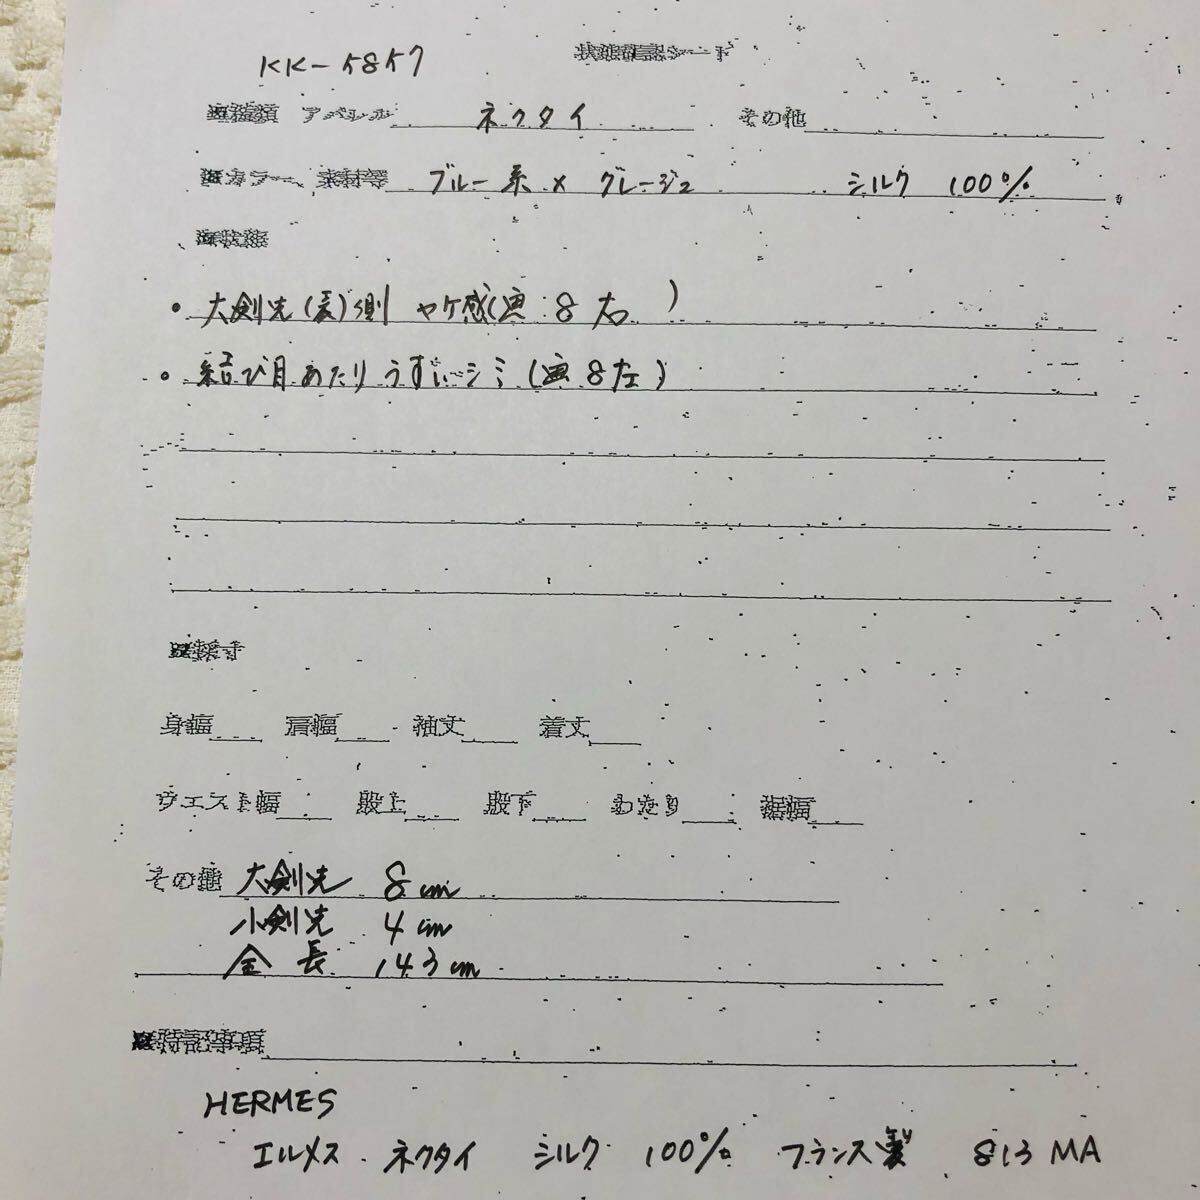 KK-5857 状態確認シート
種類 アパレル ネクタイ その他
カラー、素材等 ブルー系 × グレージュ シルク 100%
状態
・大剣先(裏)側 ヤケ感(画:8右 )
・結び目あたりうすいシミ(画8左)
採寸
身幅 肩幅 袖丈 着丈
ウエスト幅 股上 股下 わたり 裾幅
その他 大剣先 8cm
小剣先 4cm
全長 143cm
特記事項
HERMES
エルメス ネクタイ シルク 100% フランス製 813 MA